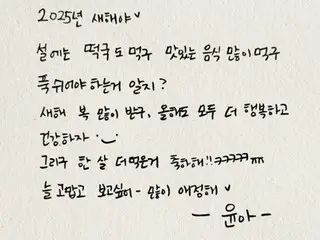 2025년 새해야♥
설에는 떡국도 먹구 맛있는 음식 많이 먹구
푹쉬어야하는거 알지?
새해 복 많이 받구, 올해도 모두 더 행복하고
건강하자 •◡•
그리구 한 살 더먹은거 축하해!!ㅋㅋㅋㅋㅠㅠ
늘 고맙고 보고싶어- 많이 애정해♥
- 윤아 -